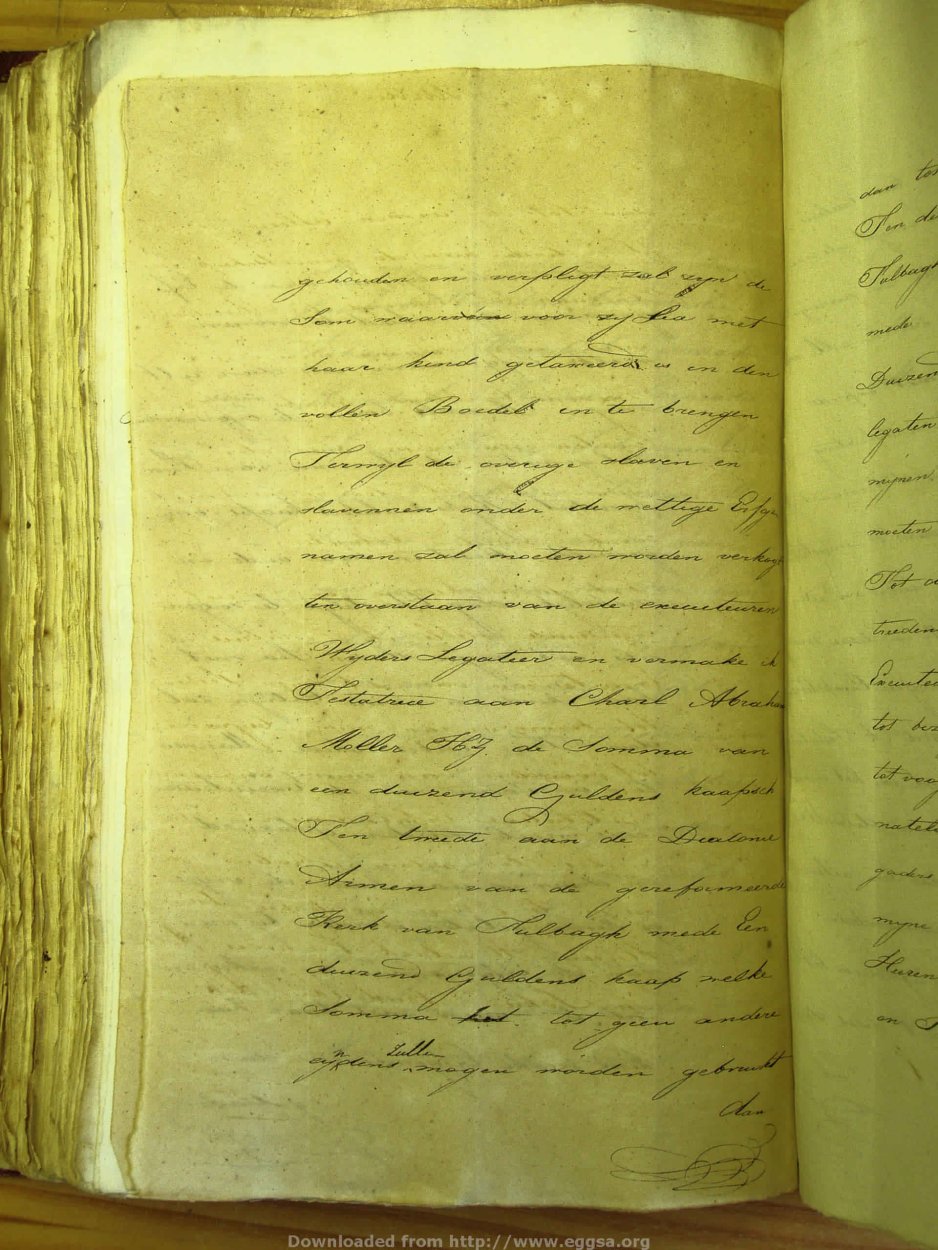 gehouden en verpligt zal zyn de
Som waarvan voor zy Lea met
haar kind getaxeerd is in den
vollen Boedel in te brengen
Terwyl de overige slaven en
slavinnen onder de wettige Erfge
namen zal moeten worden verkogt
ten overstaan van de executeuren
Wyders Legateer en vermake ik
Testatrice aan Charl Abraham
Moller HZ. de Somma van
een duizend Guldens kaapsch
Ten tweede aan de Diaconie
Armen van de gereformeerde
Kerk van Tulbagh mede Een
duizend Guldens kaap welke
Somma tot geen andere
zullen
mogen worden gebruikt
dan
dan
Ten de
Tulbagh
mede
Duizend
legaten
mynen
moeten
Tot
treeden
Executeu
tot
tot voog
natel
goderen
myne
Huren
en
Downloaded from http://www.eggsa.org